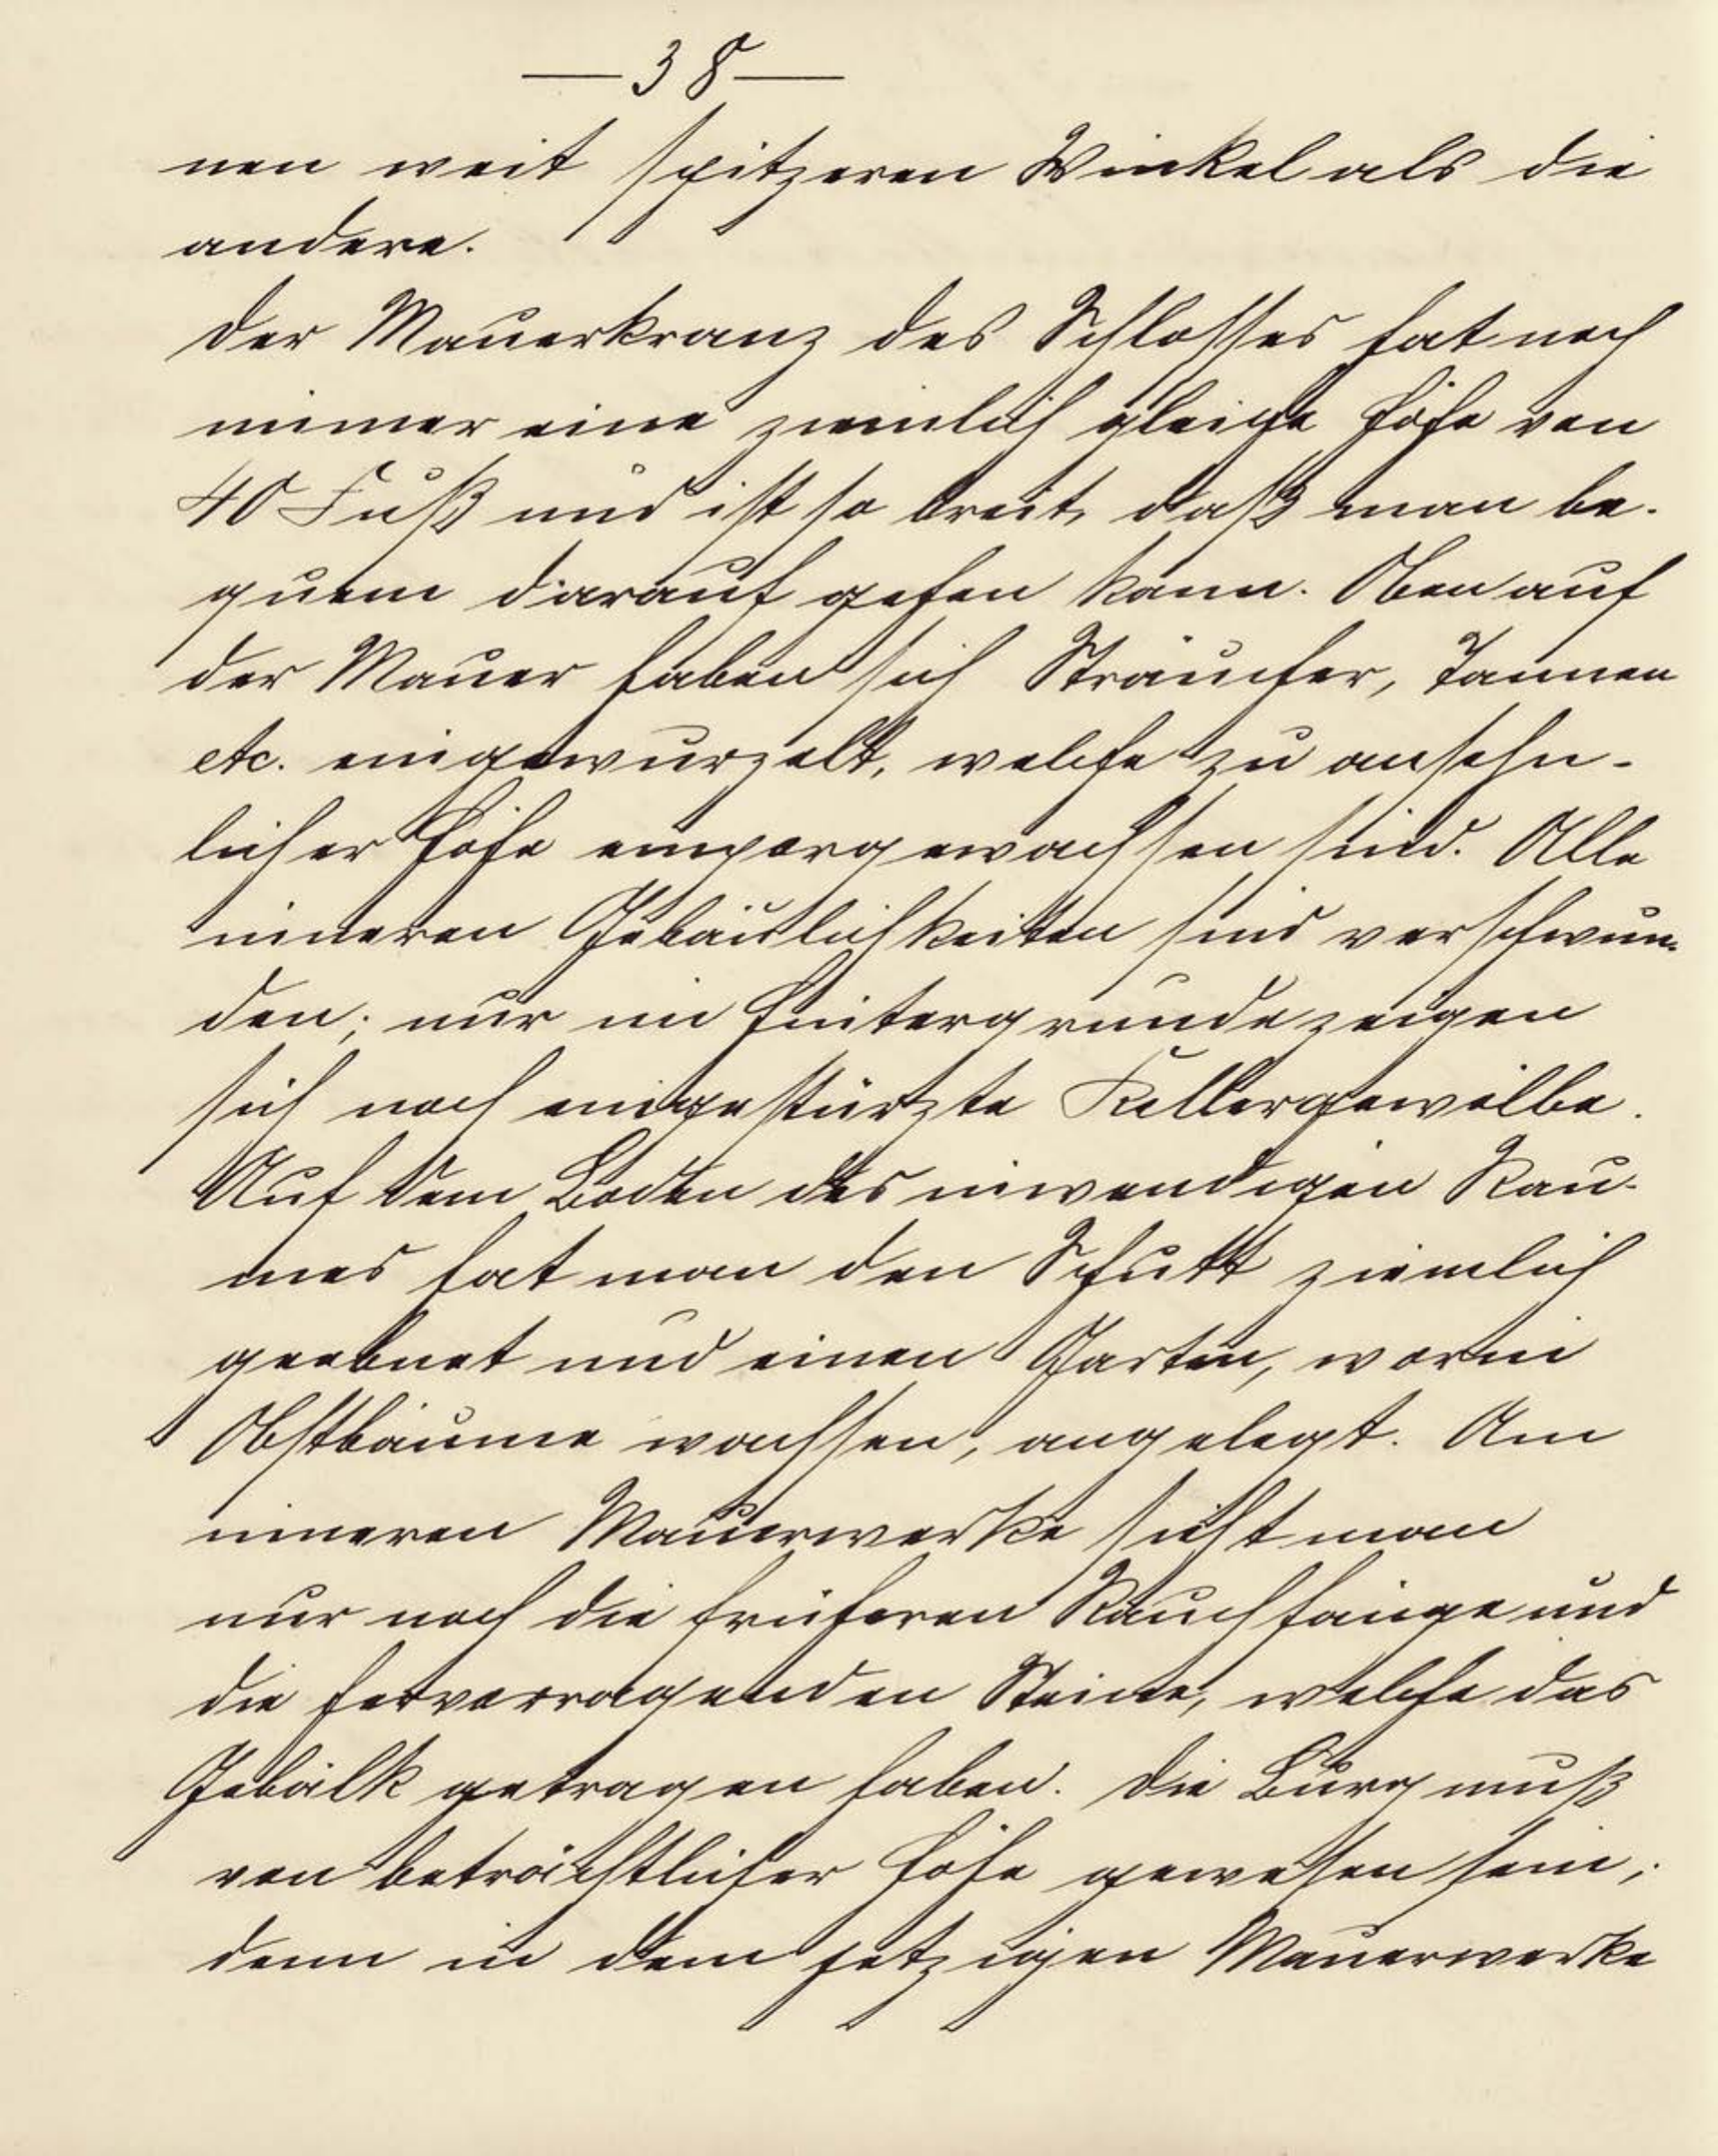 — 38 —
nen weit spitzeren Winkel als die
andere.
Der Mauerkranz des Schlosses hat noch
immer eine ziemlich gleiche Höhe von
40 Fuß und ist so breit, daß man be-
quem darauf gehen kann. Oben auf
der Mauer haben sich Sträucher, Tannen
etc. eingewurzelt, welche zu ansehn-
licher Höhe emporgewachsen sind. Alle
inneren Gebäulichkeiten sind verschwun-
den; nur im Hintergrunde zeigen
sich noch eingestürzte Kellergewölbe.
Auf dem Boden des inwendigen Rau-
mes hat man den Schutt ziemlich
geebnet und einen Garten, worin
Obstbäume wachsen, angelegt. Am
inneren Mauerwerke sieht man
nur noch die früheren Rauchfänge und
die hervorragenden Steine, welche das
Gebälk getragen haben. Die Burg muß
von beträchtlicher Höhe gewesen sein;
denn in dem jetzigen Mauerwerke